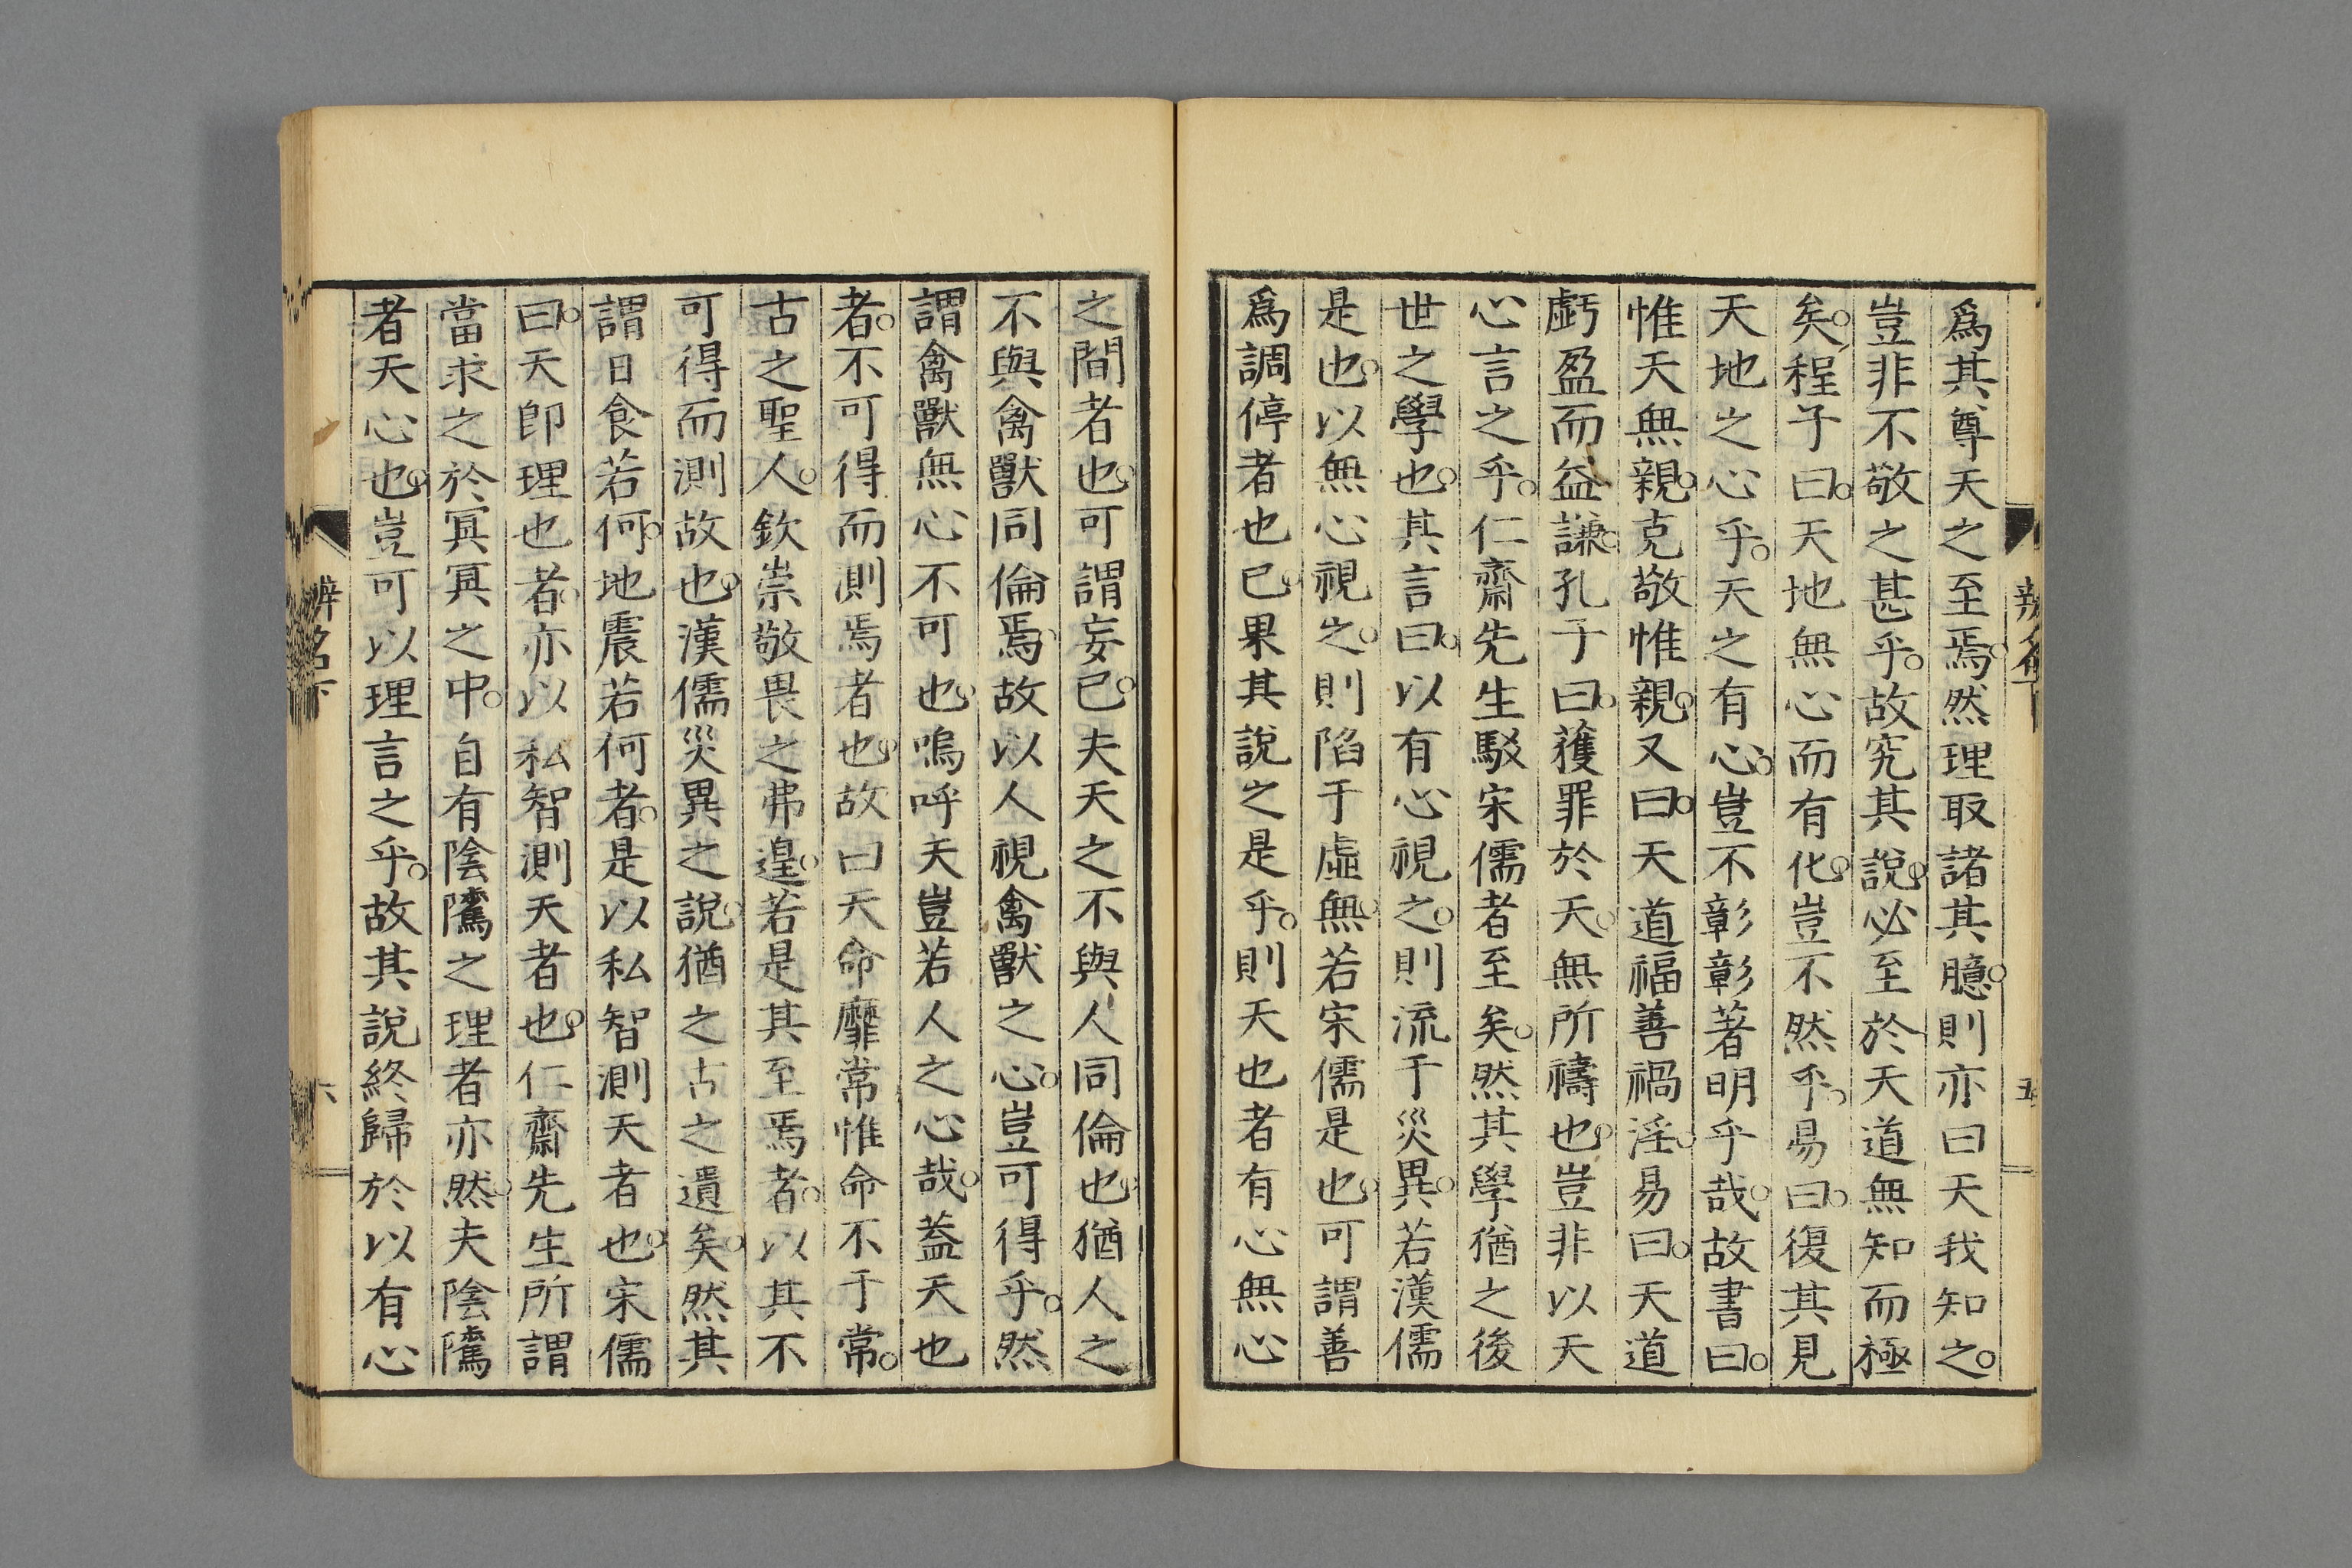 爲其尊天之至焉。然理取諸其臆。則亦曰天我知之。
豈非不敬之甚乎。故究其說。必至於天道無知而極
矣。程子曰。天地無心而有化。豈不然乎。易曰。復其見
天地之心乎。天之有心。豈不彰彰著明乎哉。故書曰。
惟天無親。克敬惟親。又曰。天道福善禍淫。易曰。天道
虧盈而益謙。孔子曰。獲罪於天。無所禱也。豈非以天
心言之乎。仁齋先生駁宋儒者至矣。然其學猶之後
世之學也。其言曰。以有心視之。則流于災異。若漢儒
是也。以無心視之。則陷于虛無。若宋儒是也。可謂善
爲調停者也。已果其說之是乎。則天也者有心無心
辨名下
五
之間者也。可謂妄已。夫天之不與人同倫也。猶人之
不與禽獸同倫焉。故以人視禽獸之心。豈可得乎。然
謂禽獸無心不可也。嗚呼天豈若人之心哉。蓋天也
者。不可得而測焉者也。故曰天命靡常惟命不于常。
古之聖人。欽崇敬畏之弗遑。若是其至焉者。以其不
可得而測故也。漢儒災異之說。猶之古之遺矣。然其
謂日食若何。地震若何者。是以私智測天者也。宋儒
曰。天卽理也者。亦以私智測天者也。仁齋先生所謂
當求之於冥冥之中。自有陰隲之理者亦然。夫陰隲
者天心也。豈可以理言之乎。故其說終歸於以有心
辨名下
六